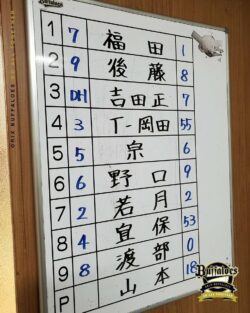 Buffaloes
1 7 福田 1
2 9 後藤 8
3 DH 吉田正 7
4 3 T-岡田 55
5 5 宗 6
6 6 野口 9
7 2 若月 2
8 4 宜保 53
9 8 渡部 0
P 山本 18
ORIX BUFFALOES
Buffaloes